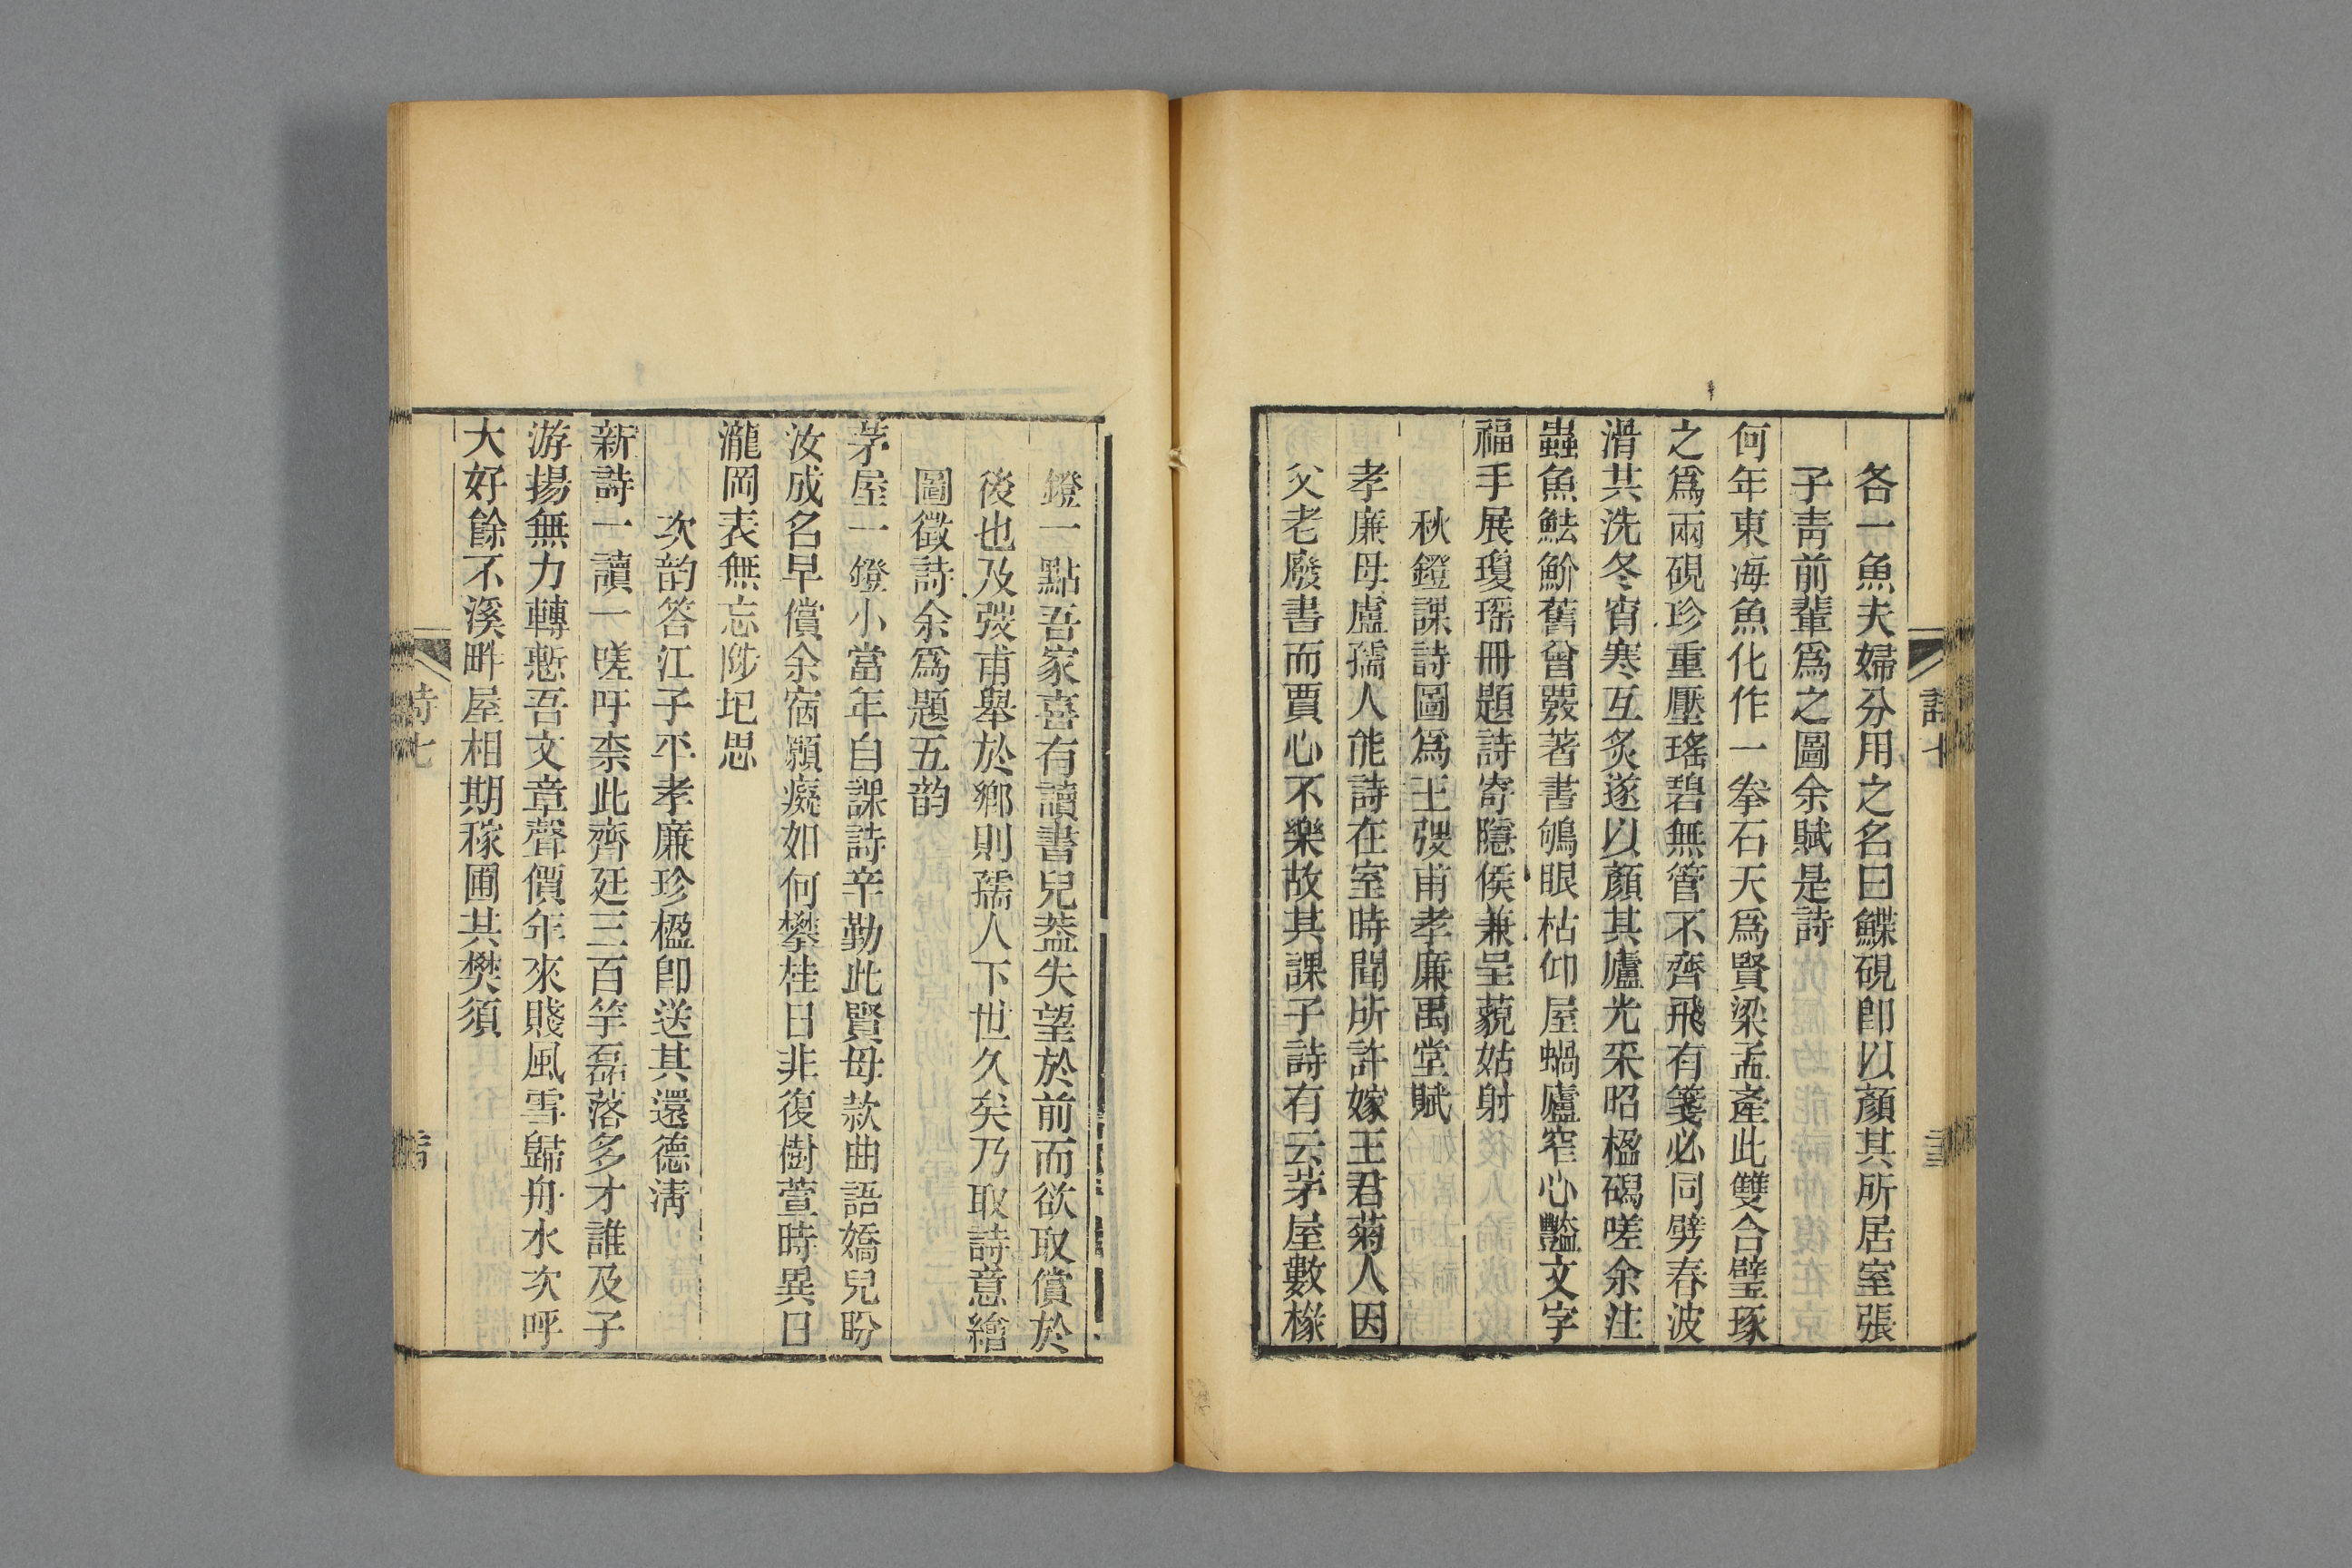 各一魚夫婦分用之名曰鰈硯卽以顏其所居室張
子靑前輩爲之圖余賦是詩
何年東海魚化作一拳石天爲賢梁孟產此雙合璧琢
之爲兩硯珍重壓瑤碧無管不齊飛有箋必同劈春波
滑共洗冬宵寒互炙遂以顏其廬光采昭楹碣嗟余注
蟲魚魼魪舊曾覈著書鴝眼枯仰屋蝸廬窄心豔文字
福手展瓊瑶冊題詩寄隱侯兼呈藐姑射
秋鐙課詩圖爲王弢甫孝廉禹堂賦
孝廉母盧孺人能詩在室時聞所許嫁王君菊人因
父老廢書而賈心不樂故其課子詩有云茅屋數椽
鐙一點吾家喜有讀書兒葢失望於前而欲取償於
後也及弢甫舉於鄉則孺人下世久矣乃取詩意繪
圖徵詩余爲題五韵
茅屋一鐙小當年自課詩辛勤此賢母款曲語嬌兒盼
汝成名早償余宿願癡如何攀桂日非復樹萱時異日
瀧岡表無忘陟圯思
次韵答江子平孝廉珍楹卽送其還德淸
新詩一讀一嗟吁柰此齊廷三百竽磊落多才誰及子
游揚無力轉慙吾文章聲價年來賤風雪歸舟水次呼
大好餘不溪畔屋相期稼圃其樊須
詩七